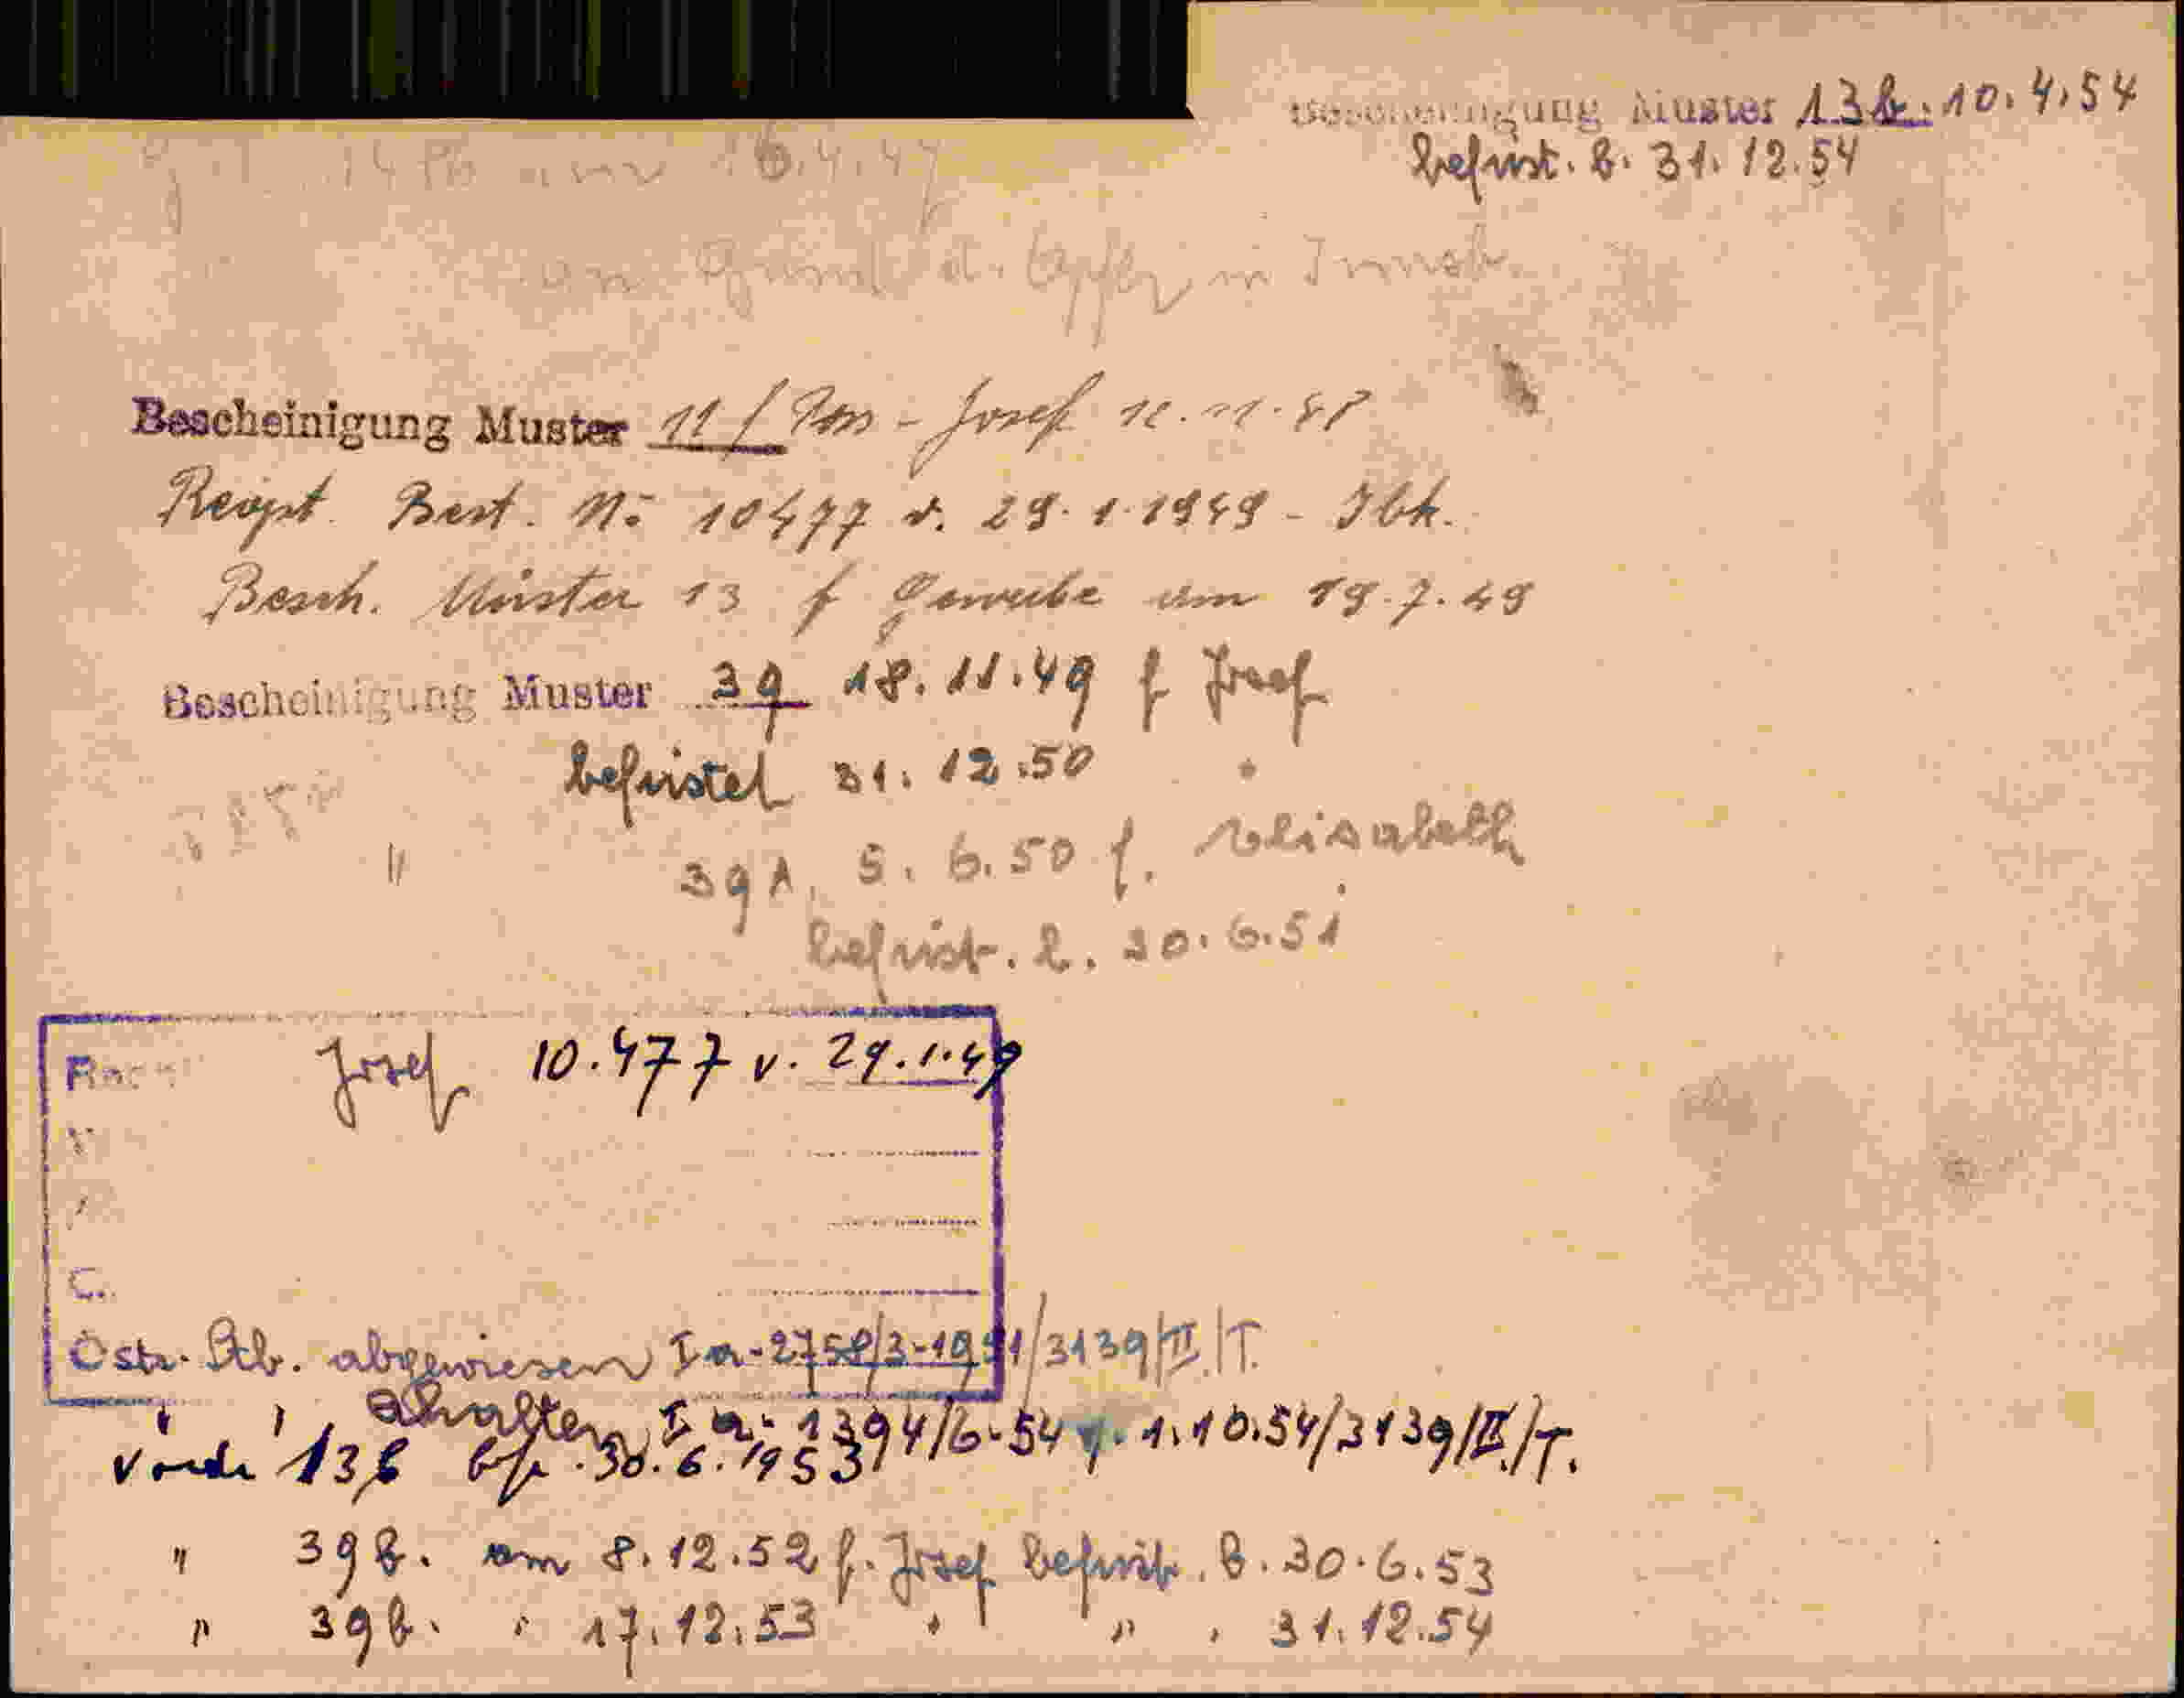 Bescheinigung Muster 13b. 10.4.54
befrist. b. 31.12.54
16.4.47
Bescheinigung Muster 11/ Josef
Best. No 10477 v. 29.1.1949 - Ibk.
Besch. Muster 13 f Gewerbe am 19.7.49
Bescheinigung Muster 39 18.11.49 f Josef
befristet 31.12.50
" 39A. 5.6.50 f. Elisabeth
befrist. b. 30.6.51
Josef 10.477 v. 29.1.49
V.
C.
Östr. Stb. abgewiesen Ia-2758/3-1951/3139/II./T.
" " erhalten Ia-1394/6-54 v. 1.10.54/3139/II./T.
13b bfr. 30.6.1953
" 39b. am 8.12.52 f. Josef befrist. b. 30.6.53
" 39b. " 17.12.53 " " " 31.12.54